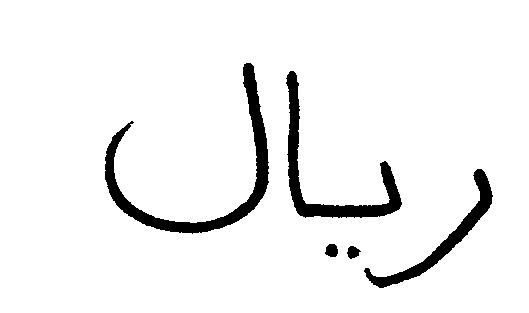 ريال